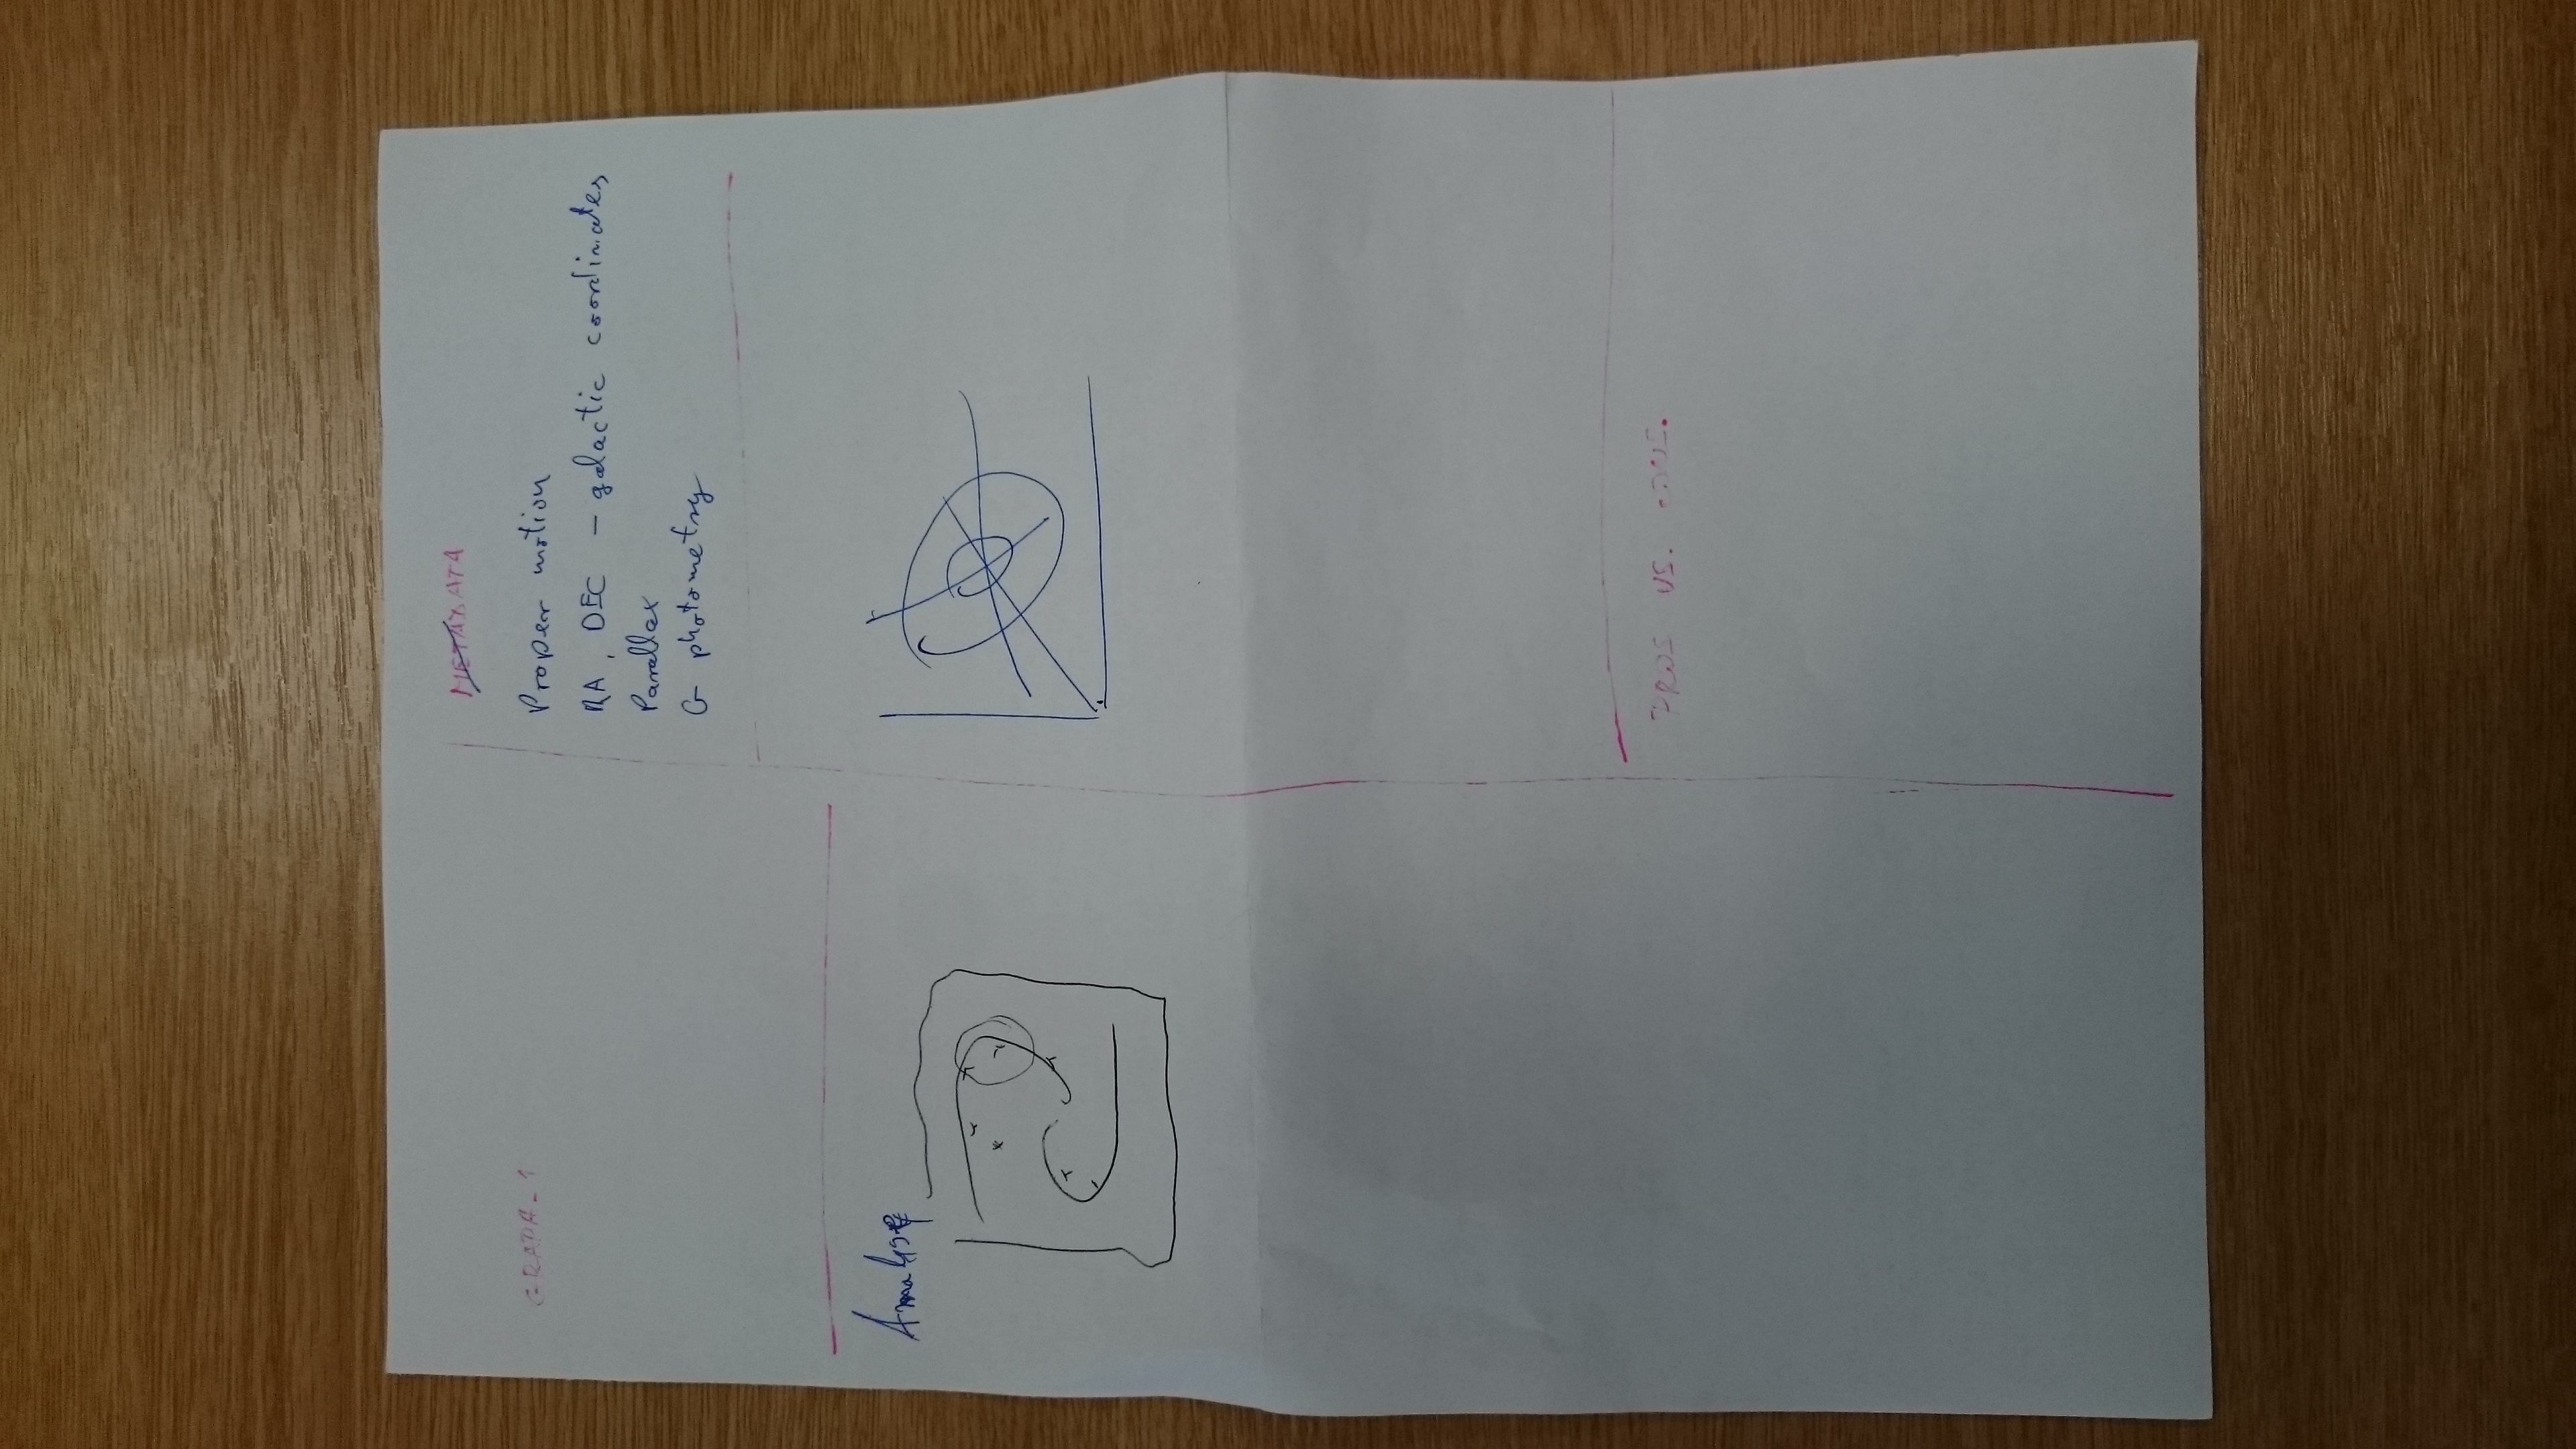 METADATA
Proper motion
RA, DEC - galactic coordinates
Parallax
G photometry
PROS VS. CONS.